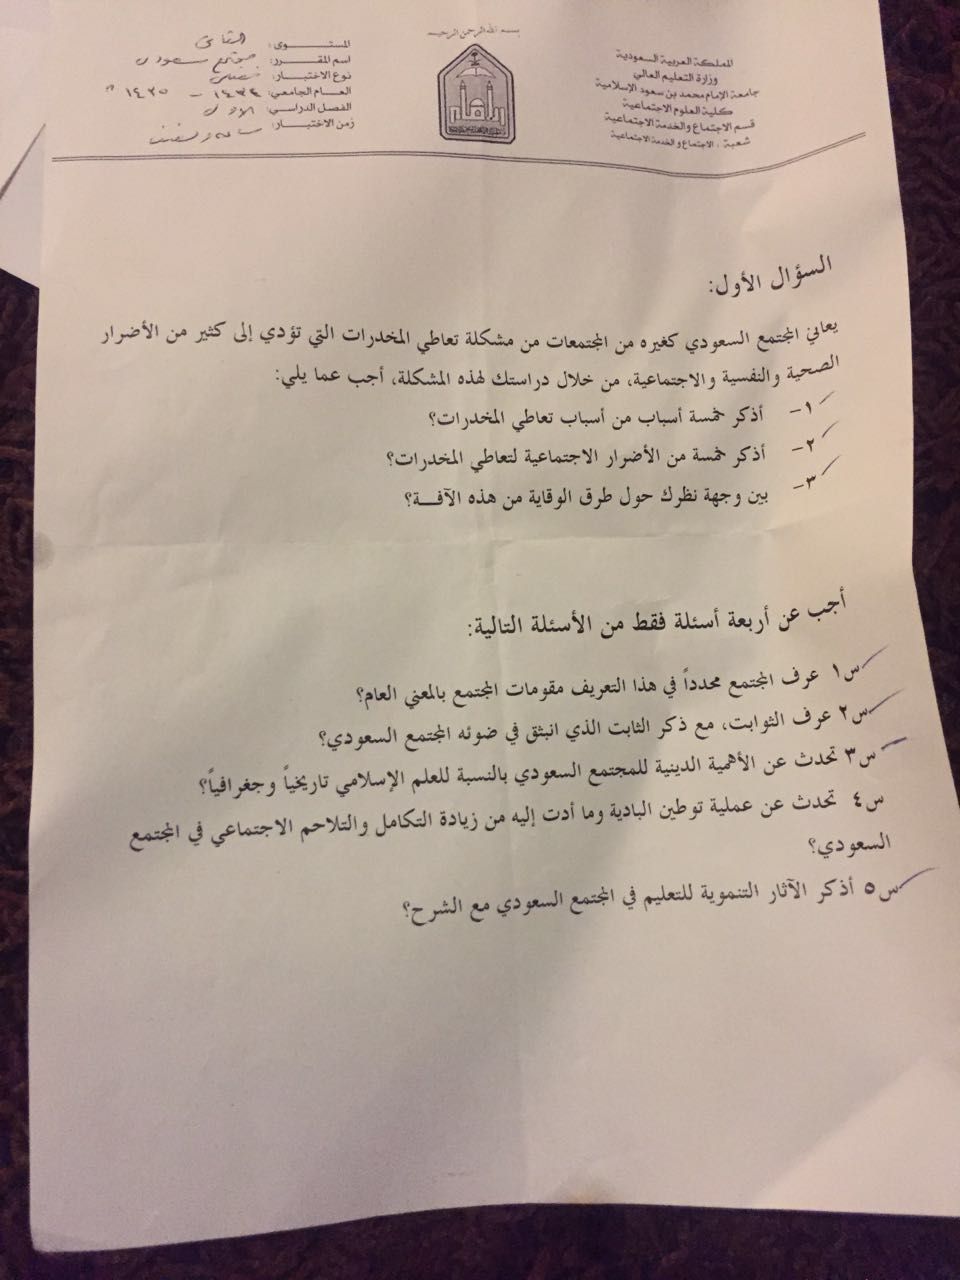 بسم الله الرحمن الرحيم
المملكة العربية السعودية
وزارة التعليم العالي
جامعة الإمام محمد بن سعود الإسلامية
كلية العلوم الاجتماعية
قسم الاجتماع والخدمة الاجتماعية
شعبة : الاجتماع والخدمة الاجتماعية
المستوى: الثاني
اسم المقرر: مجتمع سعودي
نوع الاختبار: فصلي
العام الجامعي: ١٤٣٤ - ١٤٣٥ هـ
الفصل الدراسي: الأول
زمن الاختبار: ساعة ونصف
السؤال الأول:
يعاني المجتمع السعودي كغيره من المجتمعات من مشكلة تعاطي المخدرات التي تؤدي إلى كثير من الأضرار
الصحية والنفسية والاجتماعية، من خلال دراستك لهذه المشكلة، أجب عما يلي:
١- أذكر خمسة أسباب من أسباب تعاطي المخدرات؟
٢- أذكر خمسة من الأضرار الاجتماعية لتعاطي المخدرات؟
٣- بين وجهة نظرك حول طرق الوقاية من هذه الآفة؟
أجب عن أربعة أسئلة فقط من الأسئلة التالية:
س١ عرف المجتمع محدداً في هذا التعريف مقومات المجتمع بالمعني العام؟
س٢ عرف الثوابت، مع ذكر الثابت الذي انبثق في ضوئه المجتمع السعودي؟
س٣ تحدث عن الأهمية الدينية للمجتمع السعودي بالنسبة للعلم الإسلامي تاريخياً وجغرافياً؟
س٤ تحدث عن عملية توطين البادية وما أدت إليه من زيادة التكامل والتلاحم الاجتماعي في المجتمع
السعودي؟
س٥ أذكر الآثار التنموية للتعليم في المجتمع السعودي مع الشرح؟